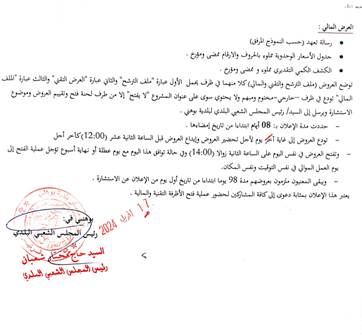 العرض المالي :
- رسالة تعهد (حسب النموذج المرفق)
- جدول الأسعار الوحدوية مملوء بالحروف والارقام ممضى ومؤرخ.
- الكشف الكمي التقديري مملوء و ممضى ومؤرخ.
توضع العروض (ملف الترشح والتقني والمالي) كلا منهما في ظرف يحمل الأول عبارة "ملف الترشح" والثاني عبارة "العرض التقني" والثالث عبارة "الملف
المالي" تودع في ظرف -خارجي-مختوم ومبهم ولا يحتوي سوى على عنوان المشروع "لا يفتح" إلا من طرف لجنة فتح وتقييم العروض وموضوع
الاستشارة ويرسل إلى السيد/ رئيس المجلس الشعبي البلدي لبلدية بوهني.
- حددت مدة الإعلان بـ: 08 أيام ابتدءا من تاريخ إمضاءها.
- تودع العروض إلى غاية آخر يوم لأجل تحضير العروض وإيداع العروض قبل الساعة الثانية عشر (12:00) كآخر أجل
- وتفتح العروض في نفس اليوم على الساعة الثانية زوالا (14:00) وفي حالة توافق هذا اليوم مع يوم عطلة أو نهاية أسبوع تؤجل عملية الفتح إلى
يوم العمل الموالي في نفس التوقيت ونفس المكان.
- ويبقى المعنيون ملزمون بعروضهم مدة 98 يوما ابتدءا من تاريخ أول يوم من الإعلان عن الاستشارة.
يعتبر هذا الإعلان بمثابة دعوى إلى كافة المشاركين لحضور عملية فتح الأظرفة التقنية والمالية.
بوهني في:
17 افريل 2024
رئيس المجلس الشعبي البلدي
السيد حاج شعبان
رئيس المجلس الشعبي البلدي